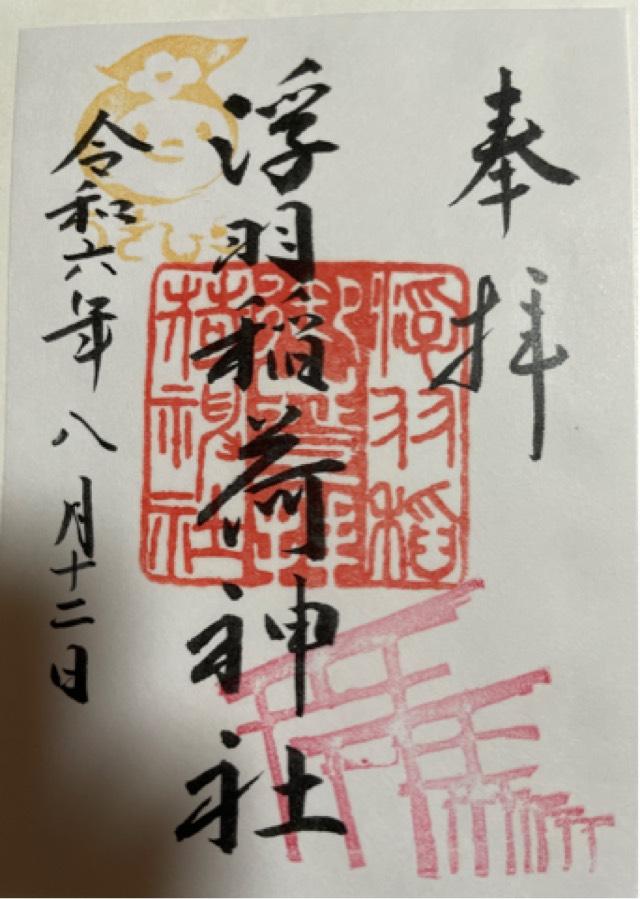 奉拝
浮羽稲荷神社
令和六年八月十二日
浮羽稲
荷神社